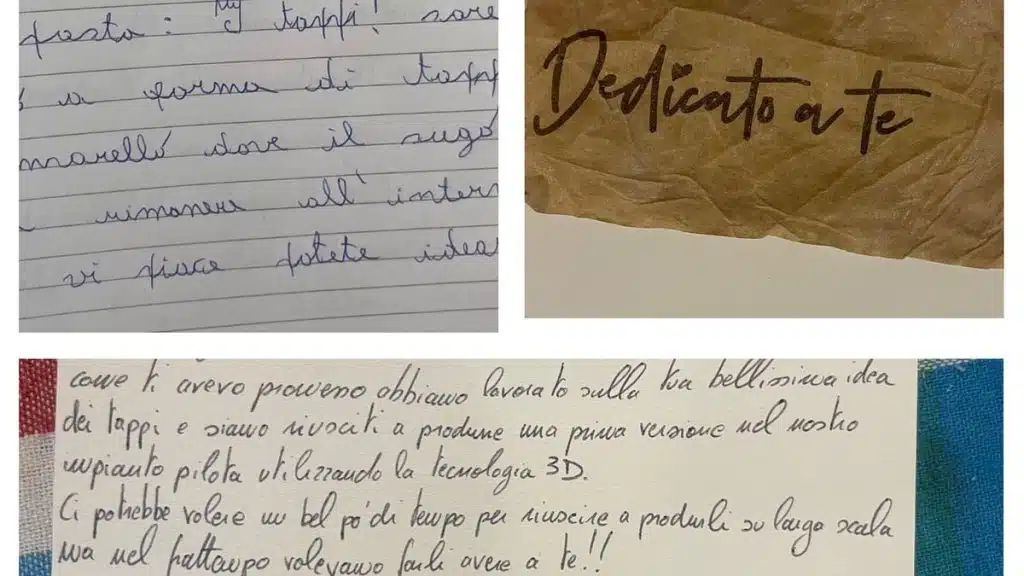 pasta: "I tappi! sare
a forma di tapp
marello dove il sugo
rimanere all'inter
vi piace potete idea
Dedicato a te
come ti avevo promesso abbiamo lavorato sulla tua bellissima idea
dei tappi e siamo riusciti a produrne una prima versione nel nostro
impianto pilota utilizzando la tecnologia 3D.
Ci potrebbe volere un bel po' di tempo per riuscire a produrli su larga scala
ma nel frattempo volevamo farli avere a te!!